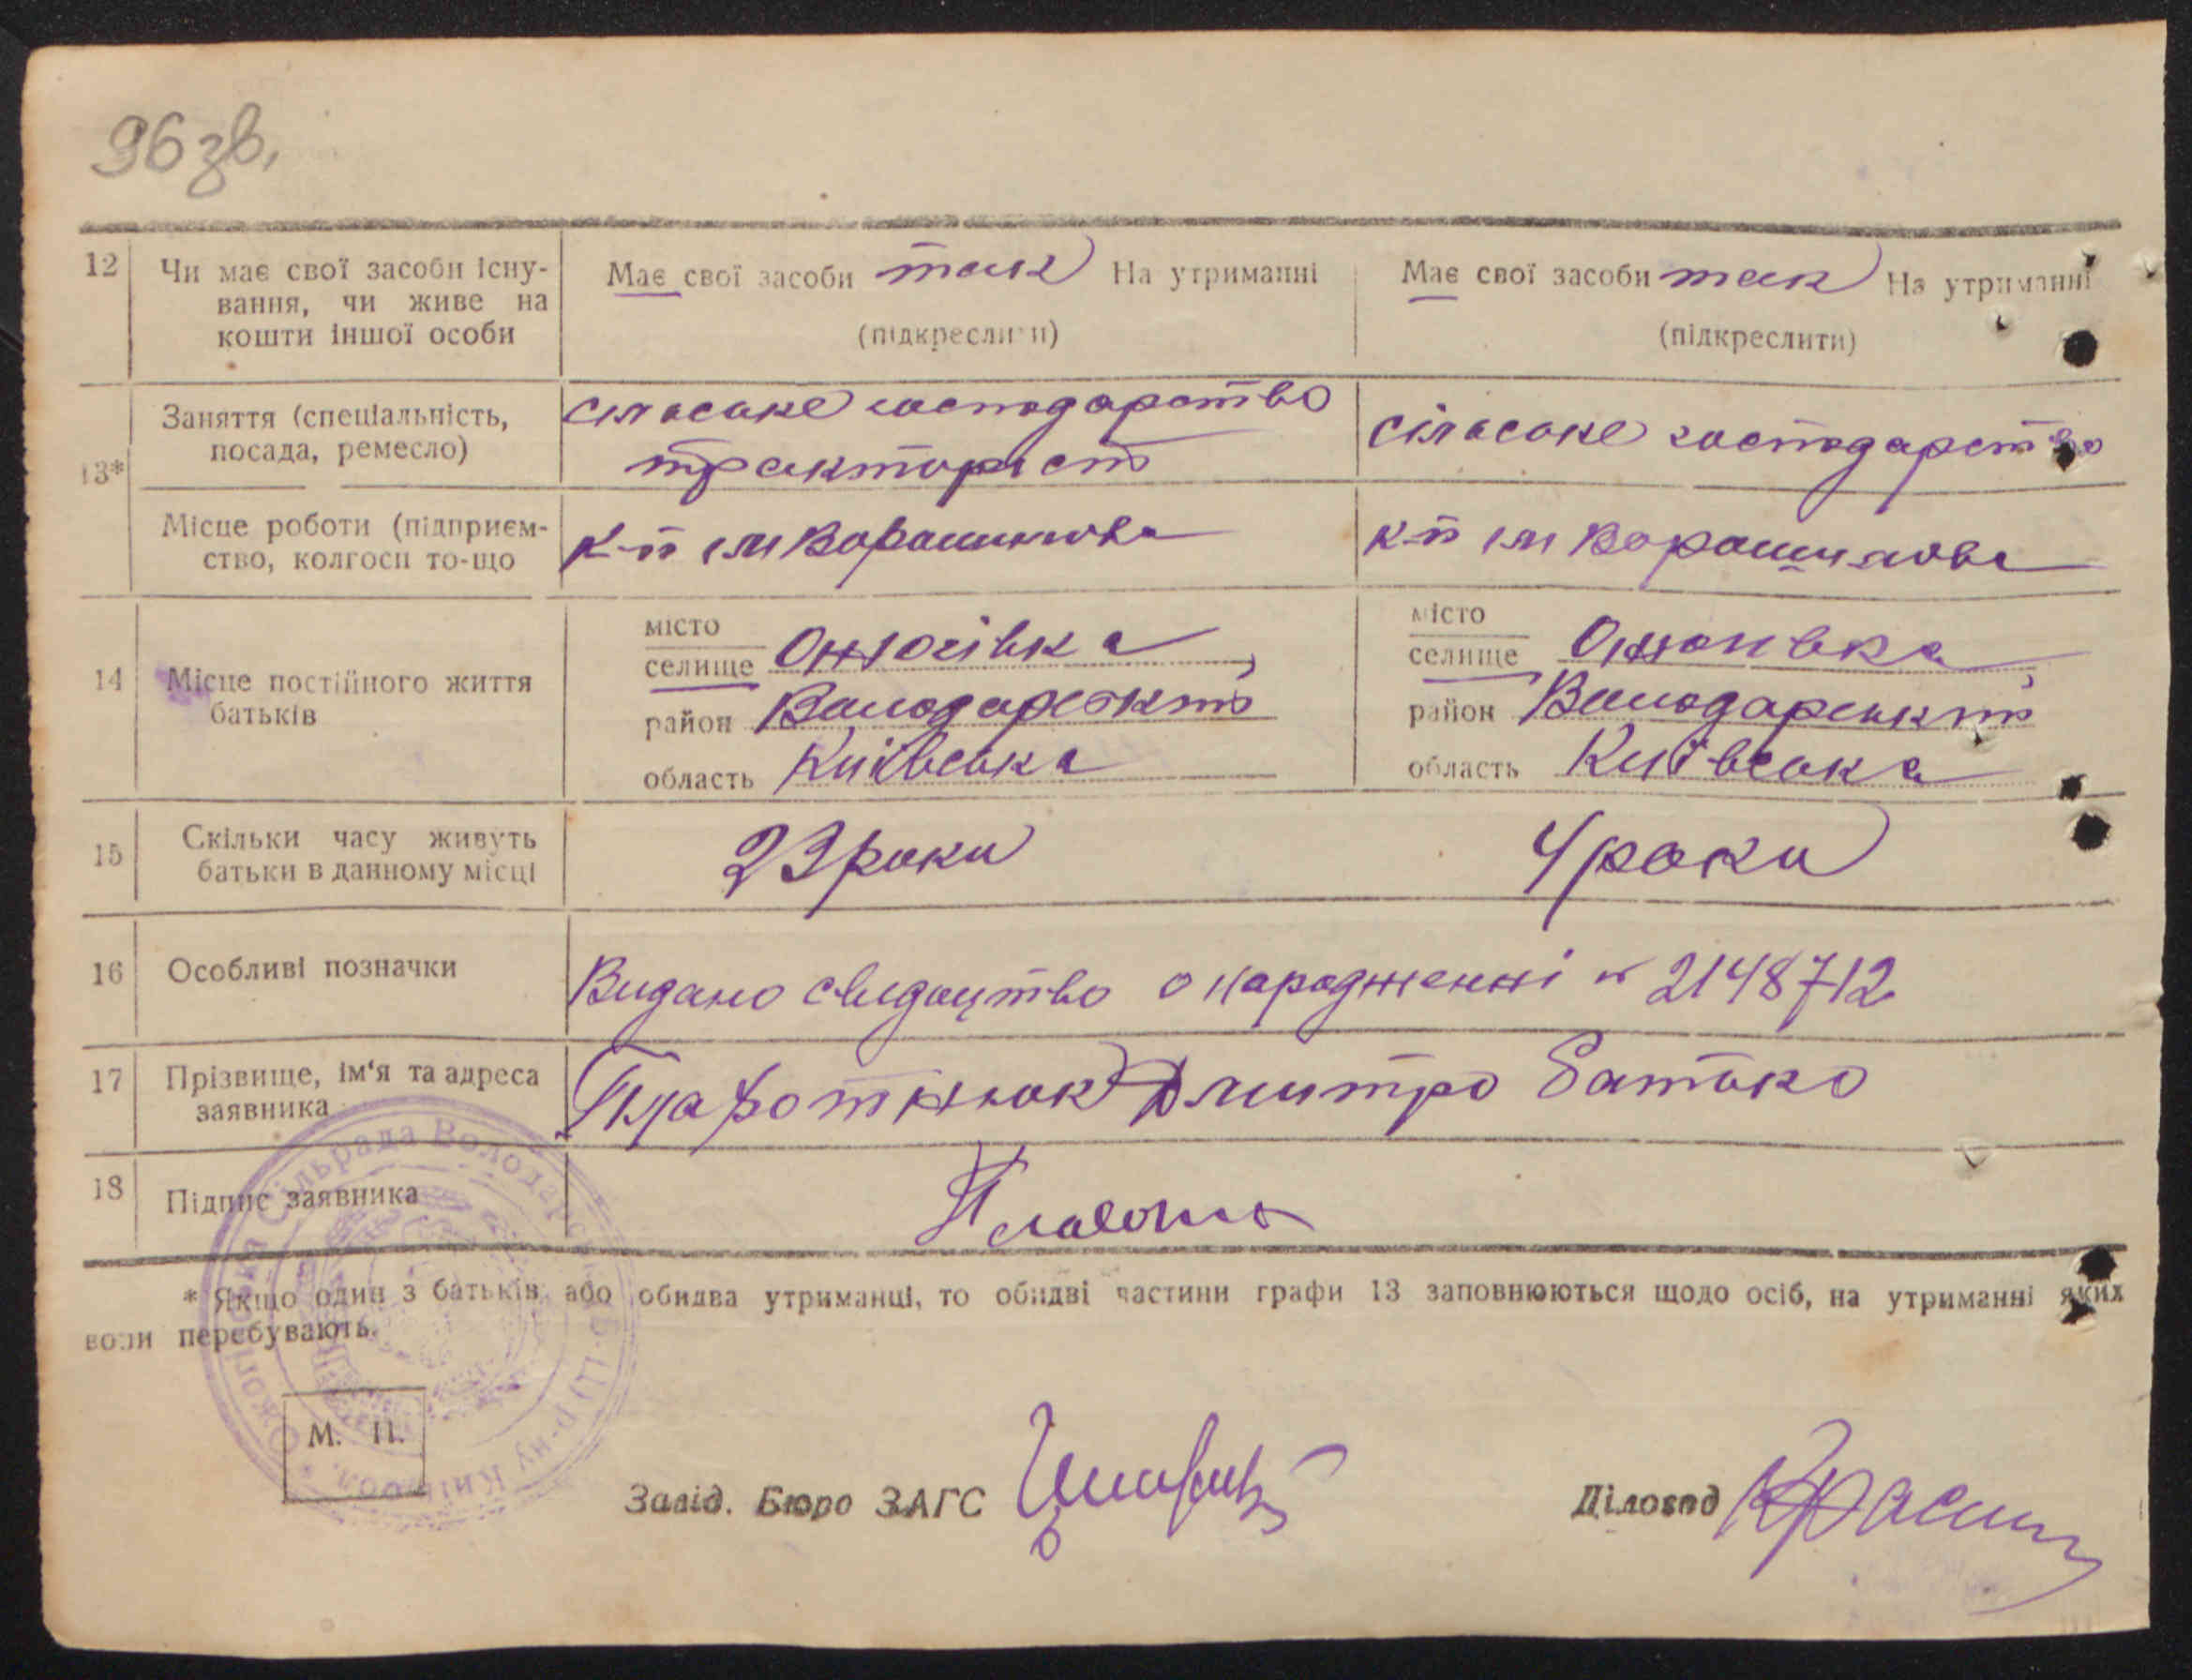 96 зв.
12 Чи має свої засоби існу-
вання, чи живе на
кошти іншої особи
Має свої засоби так На утриманні
(підкреслити)
Має свої засоби так На утриманні
(підкреслити)
13* Заняття (спеціальність,
посада, ремесло)
сільське господарство
тракторист
сільське господарство
Місце роботи (підприєм-
ство, колгосп то-що
к-п ім Ворошилова
к-п ім Ворошилова
14 Місце постійного життя
батьків
місто
селище Ожогівка,
район Володарськ
область Київська
місто
селище Ожогівка,
район Володарськ
область Київська
15 Скільки часу живуть
батьки в данному місці
23 роки
4 роки
16 Особливі позначки
Видано свидоцтво о народженні № 2148712
17 Прізвище, ім'я та адреса
заявника
Дмитро батько
18 Підпис заявника
* Якщо один з батьків або обидва утриманці, то обидві частини графи 13 заповнюються щодо осіб, на утриманні яких
вони перебувають.
Сільрада Володарськ
М. П.
Завід. Бюро ЗАГС
Діловод